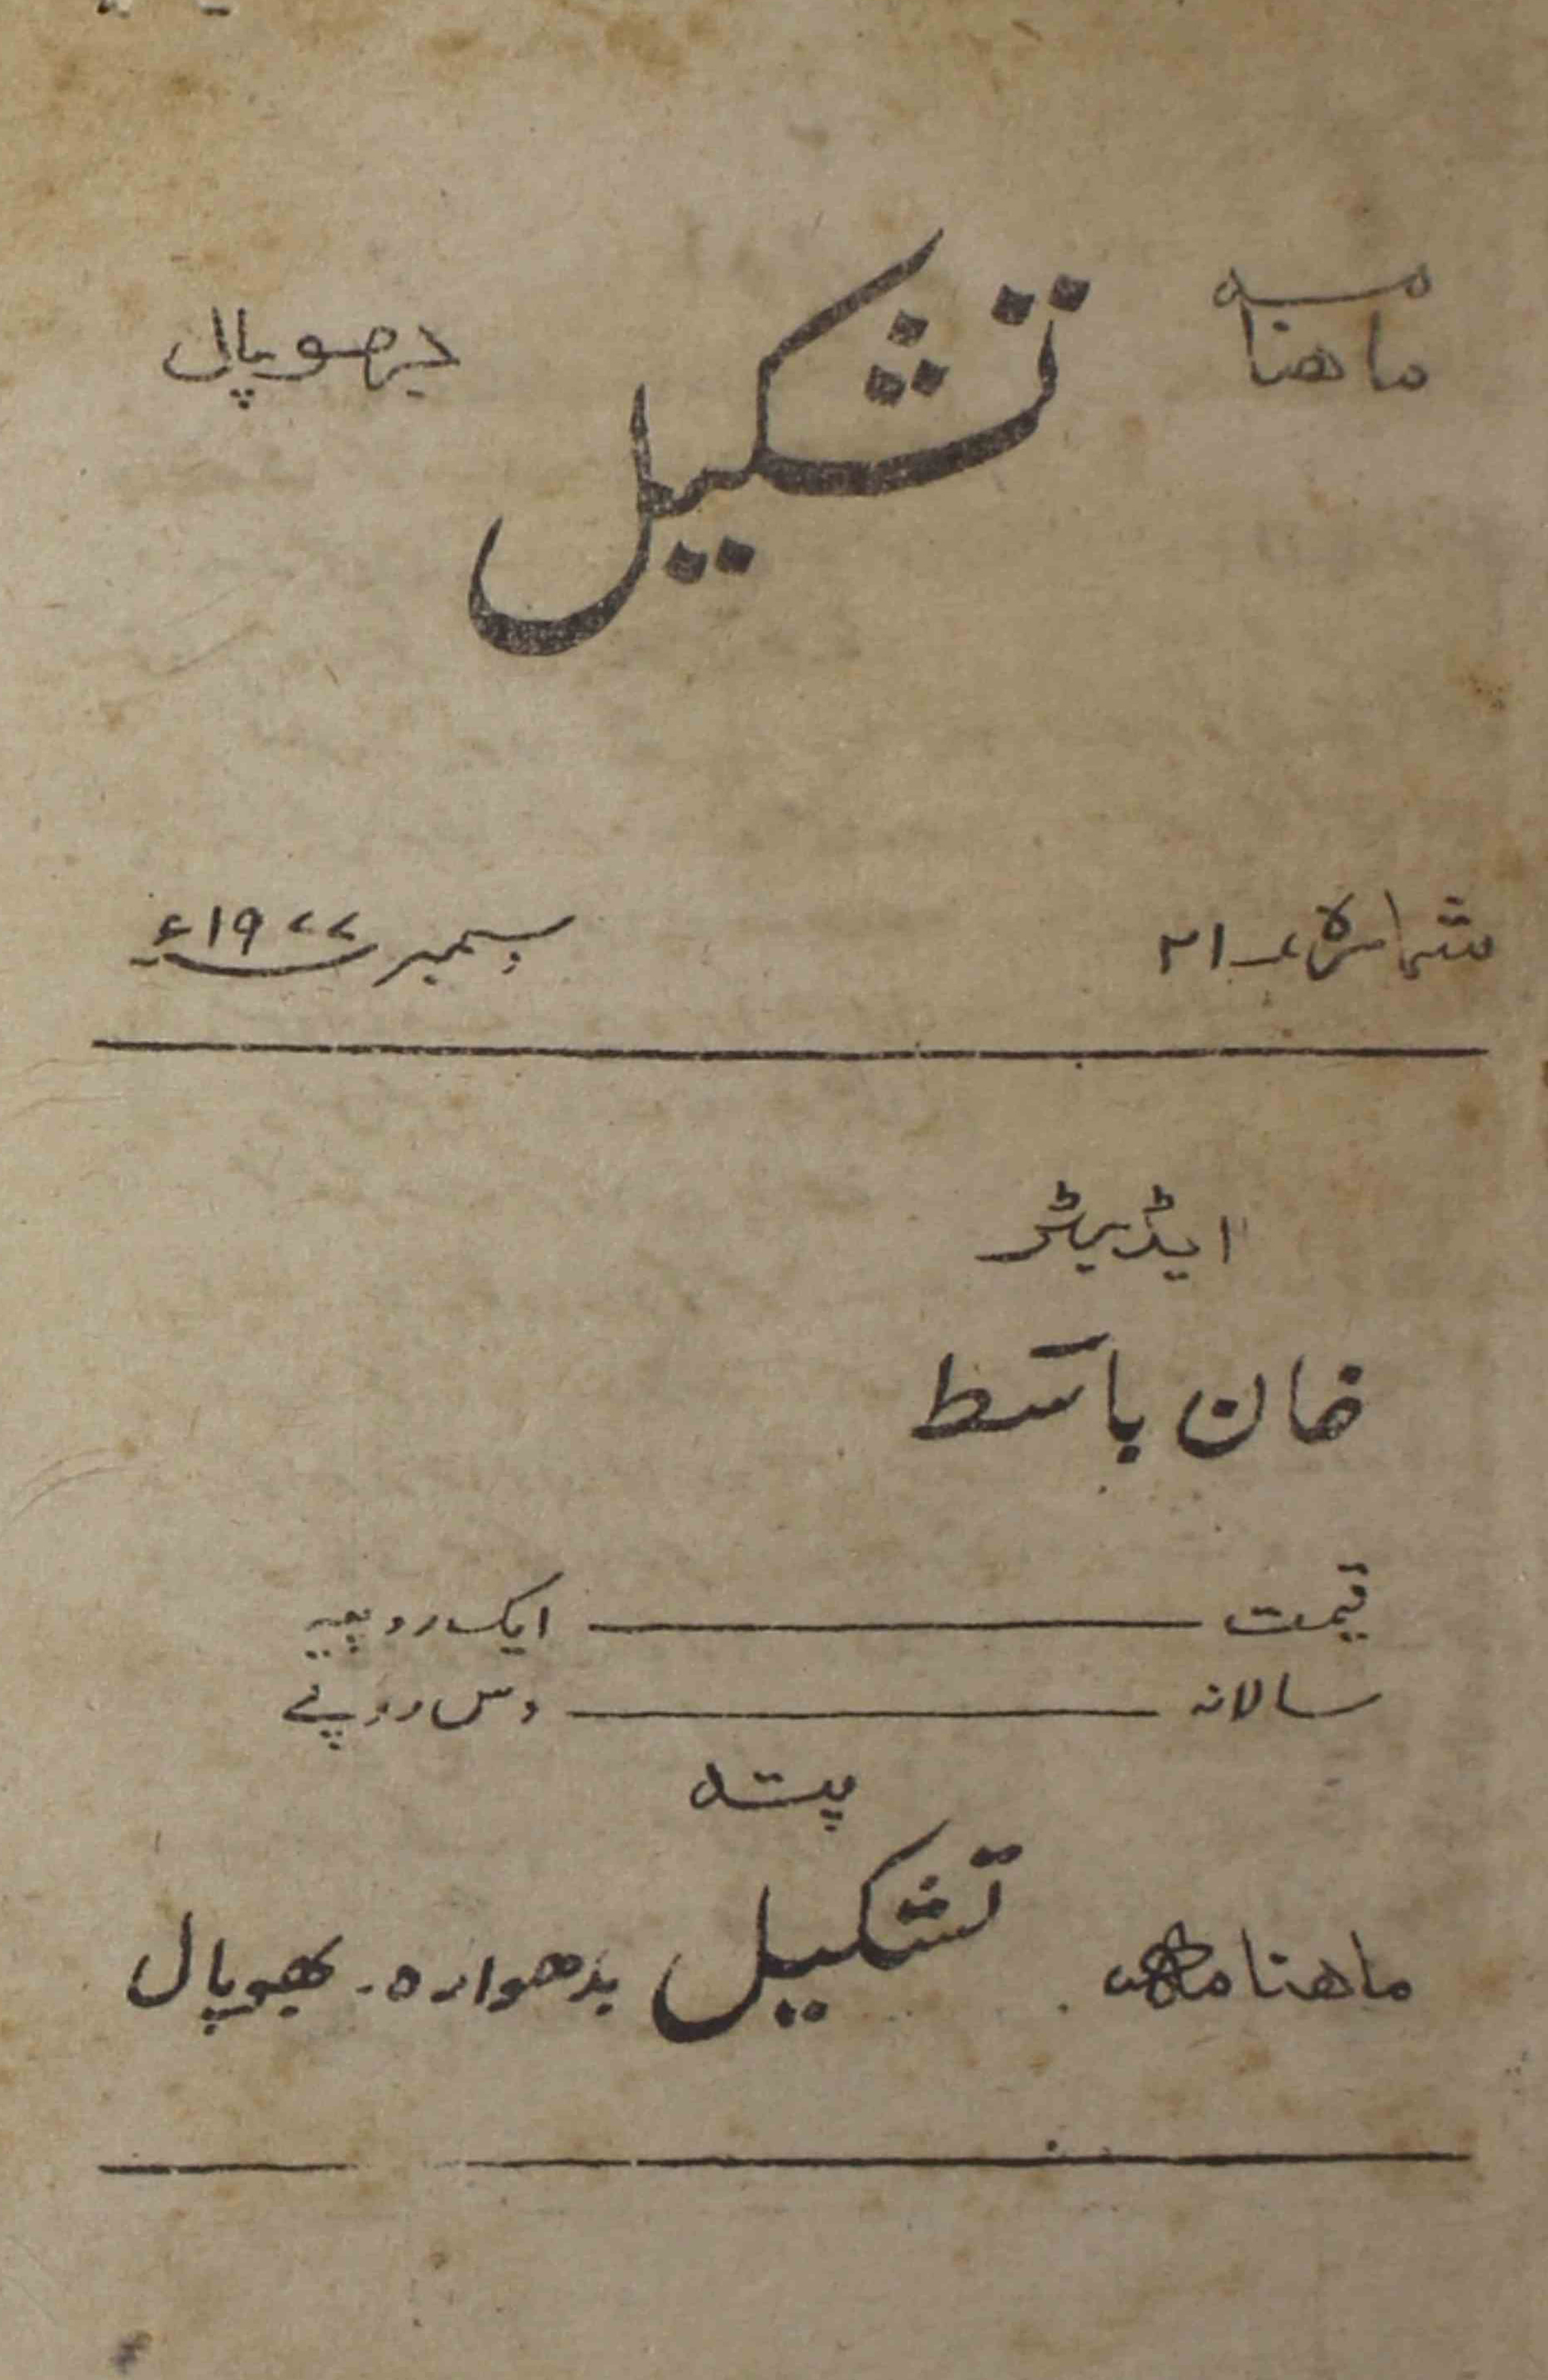 ماهنامه تشکیل بھوپال
شمارہ ۲۱ دسمبر ۱۹۷۷ء
ایڈیٹر
خان باسط
قیمت ایک روپیہ
سالانہ دس روپئے
پتہ
ماهنامہ تشکیل بدھوارہ۔ بھوپال